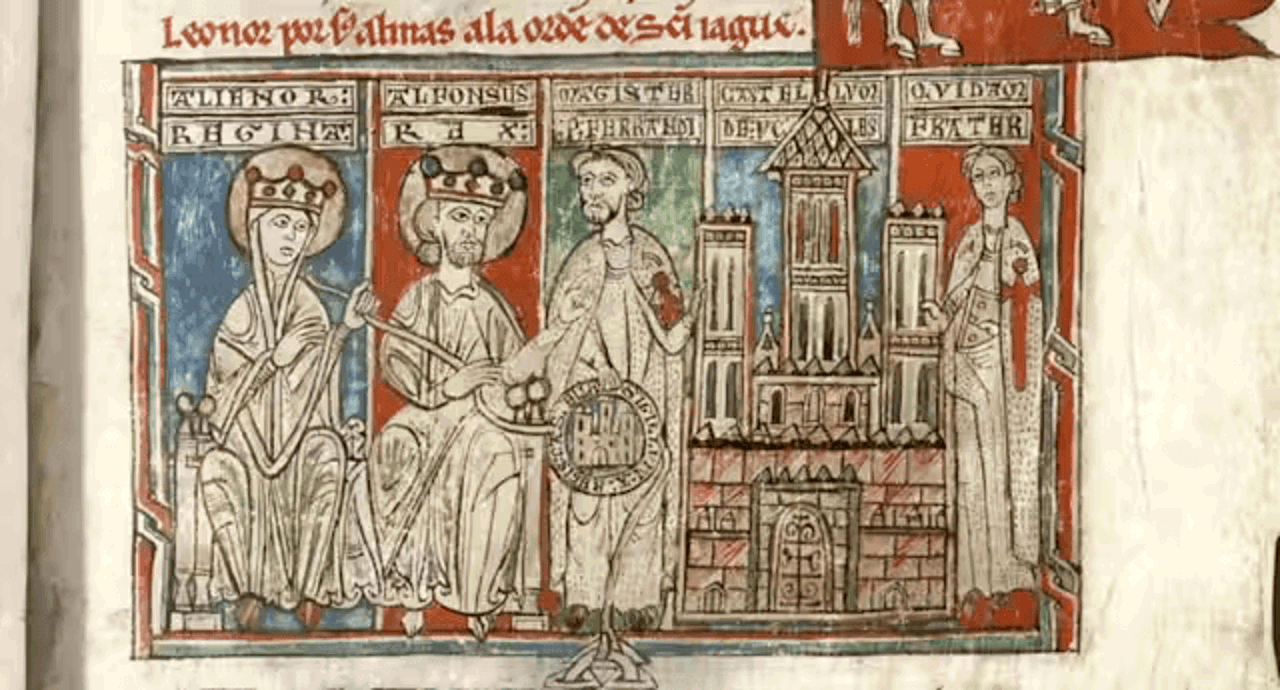 Leonor por sꝰ almas ala ordẽ de Sc̃i iague.
ALIENOR:
REGINA:
ALFONSUS
REX:
MAGISTER
P. FERRANDI
CASTELLUM
DE: UCLES
QUIDAM
FRATER